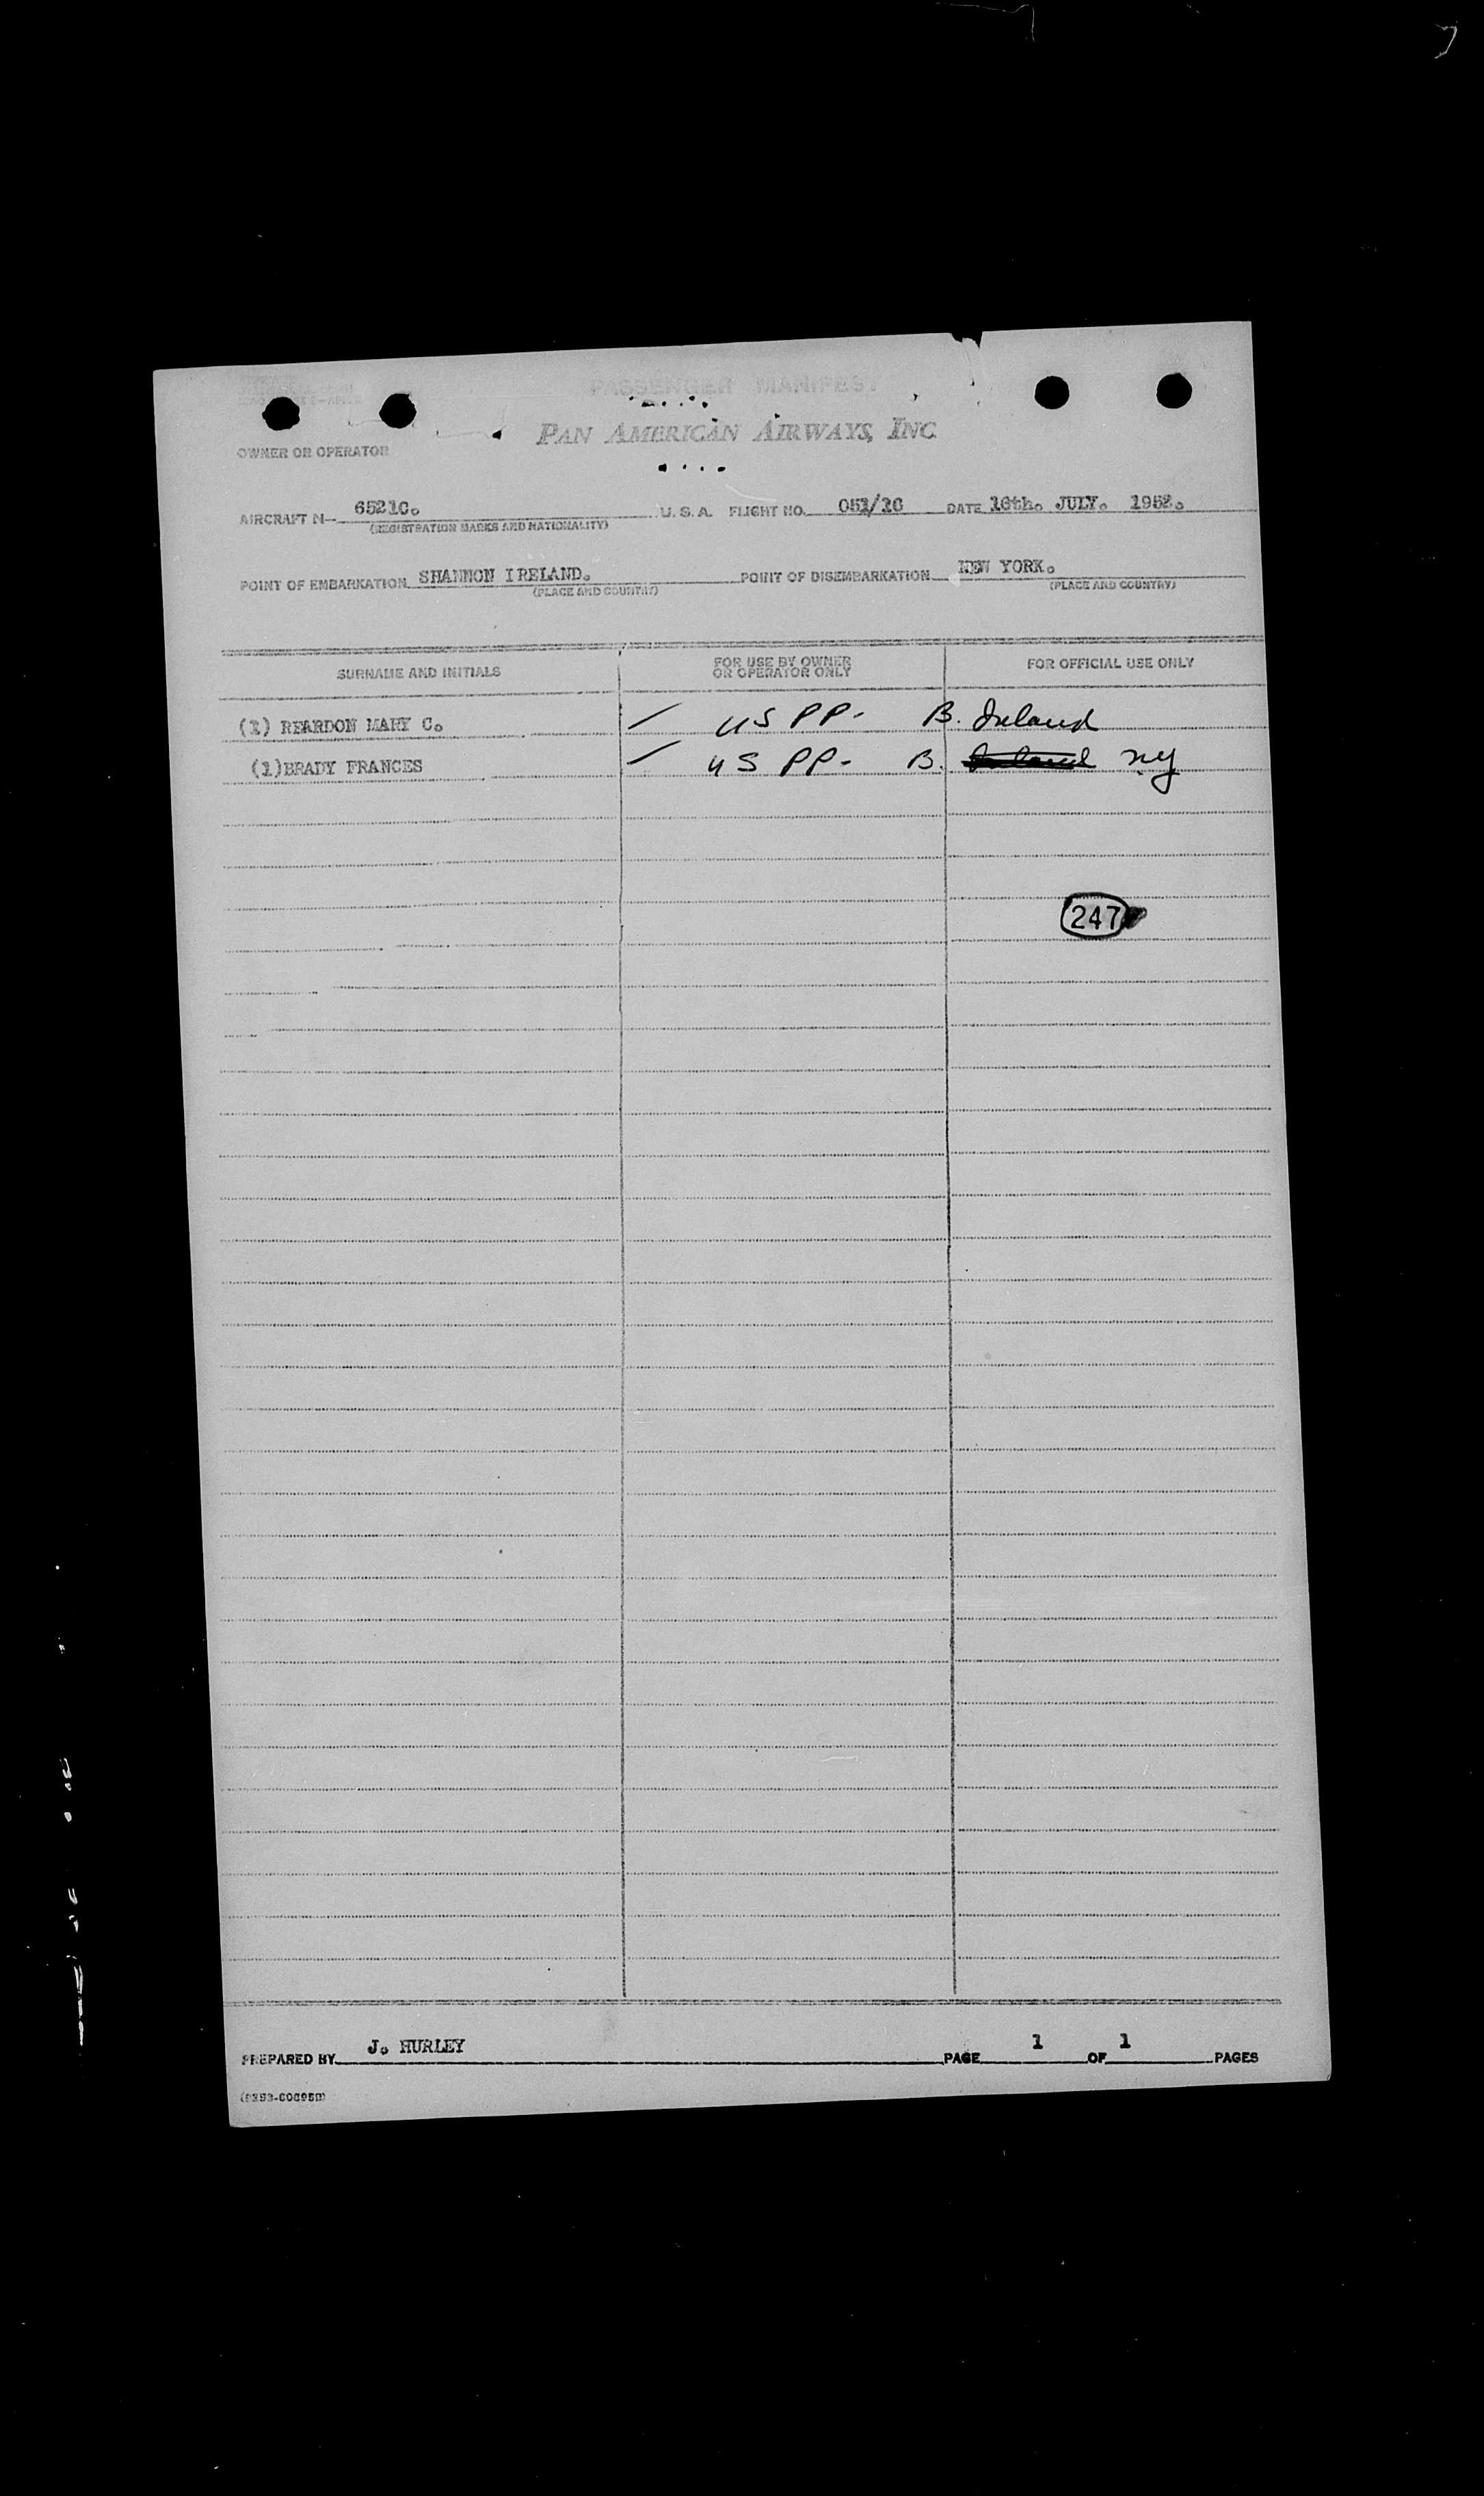 PASSENGER MANIFEST
PAN AMERICAN AIRWAYS, INC.
OWNER OR OPERATOR
AIRCRAFT N- 6521C. U.S.A. FLIGHT NO. 051/16 DATE 16th. JULY. 1952.
(REGISTRATION MARKS AND NATIONALITY)
POINT OF EMBARKATION SHANNON IRELAND. POINT OF DISEMBARKATION NEW YORK.
(PLACE AND COUNTRY) (PLACE AND COUNTRY)
SURNAME AND INITIALS FOR USE BY OWNER OR OPERATOR ONLY FOR OFFICIAL USE ONLY
(1) REARDON MARY C. / US PP- B. Ireland
(1)BRADY FRANCES / US PP- B. Ireland NY
247
PREPARED BY J. HURLEY PAGE 1 OF 1 PAGES